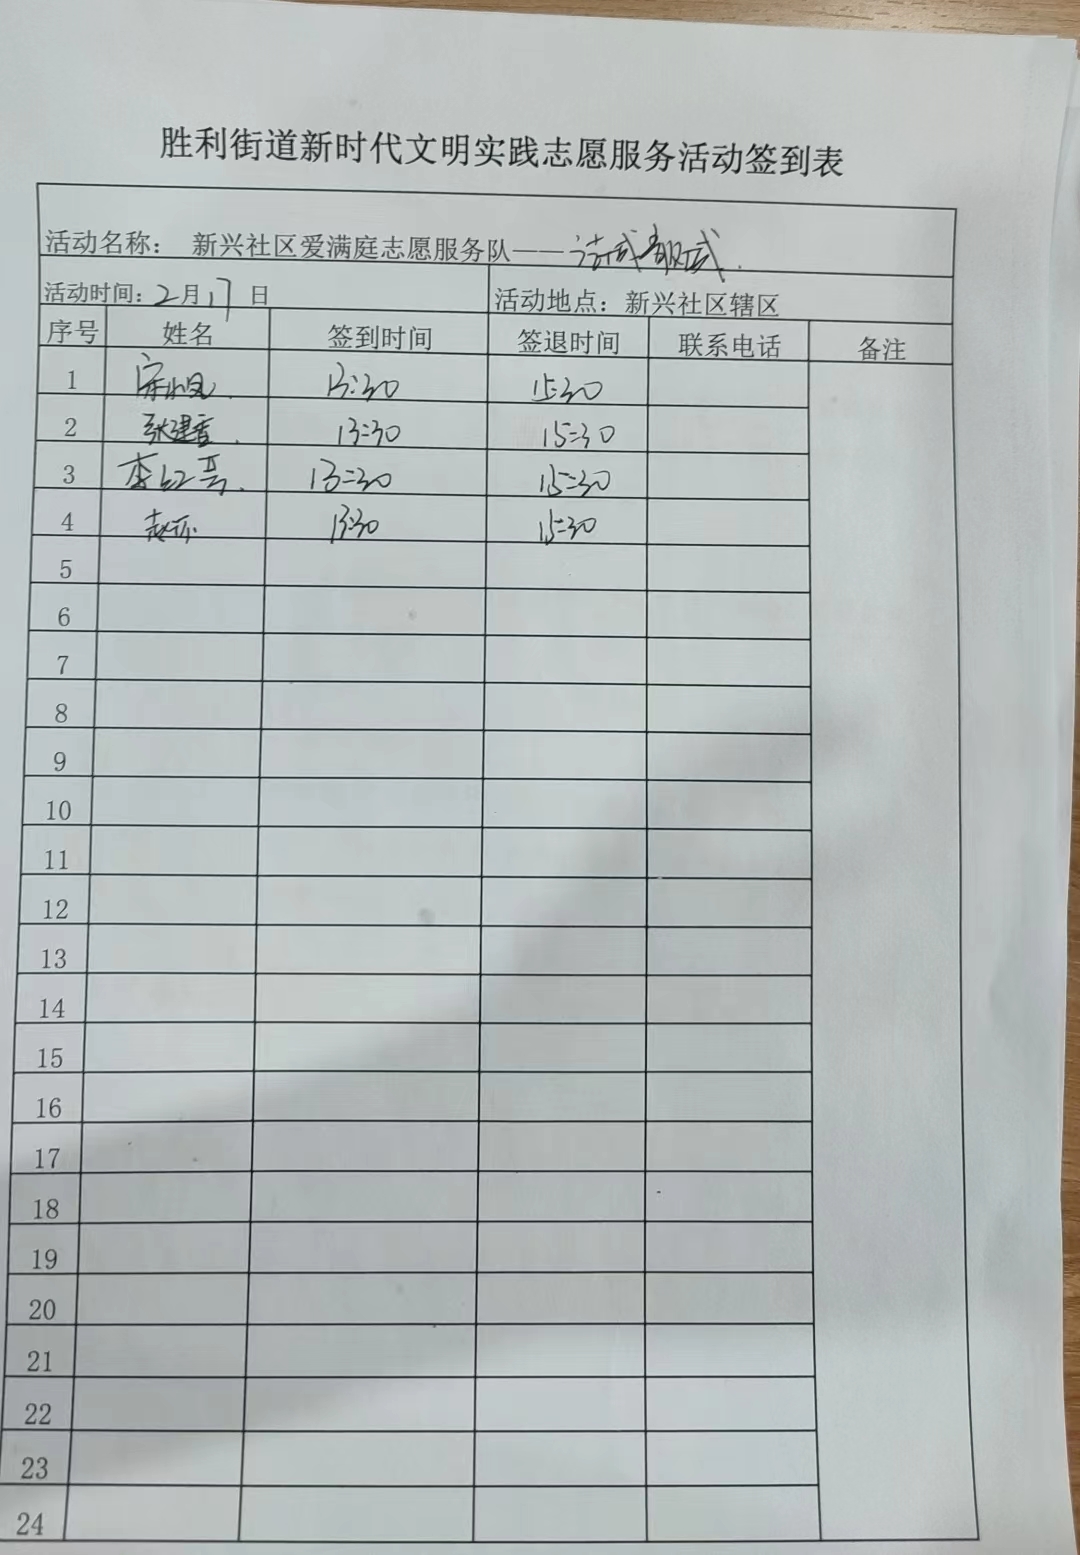 胜利街道新时代文明实践志愿服务活动签到表
活动名称： 新兴社区爱满庭志愿服务队——
活动时间：2月17日 活动地点：新兴社区辖区
序号 姓名 签到时间 签退时间 联系电话 备注
1 13:30 15:30
2 张建 13:30 15:30
3 李红 13:30 15:30
4 赵 13:30 15:30
5
6
7
8
9
10
11
12
13
14
15
16
17
18
19
20
21
22
23
24